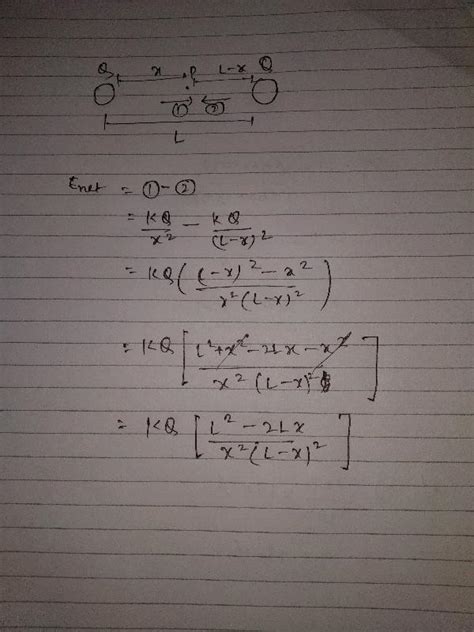 Q x P L-x Q
① ②
L
Enet = ① - ②
= KQ/x² - KQ/(L-x)²
= KQ( (L-x)² - x² / x²(L-x)² )
= KQ [ L²+x²-2Lx-x² / x²(L-x)² ]
= KQ [ L²-2Lx / x²(L-x)² ]